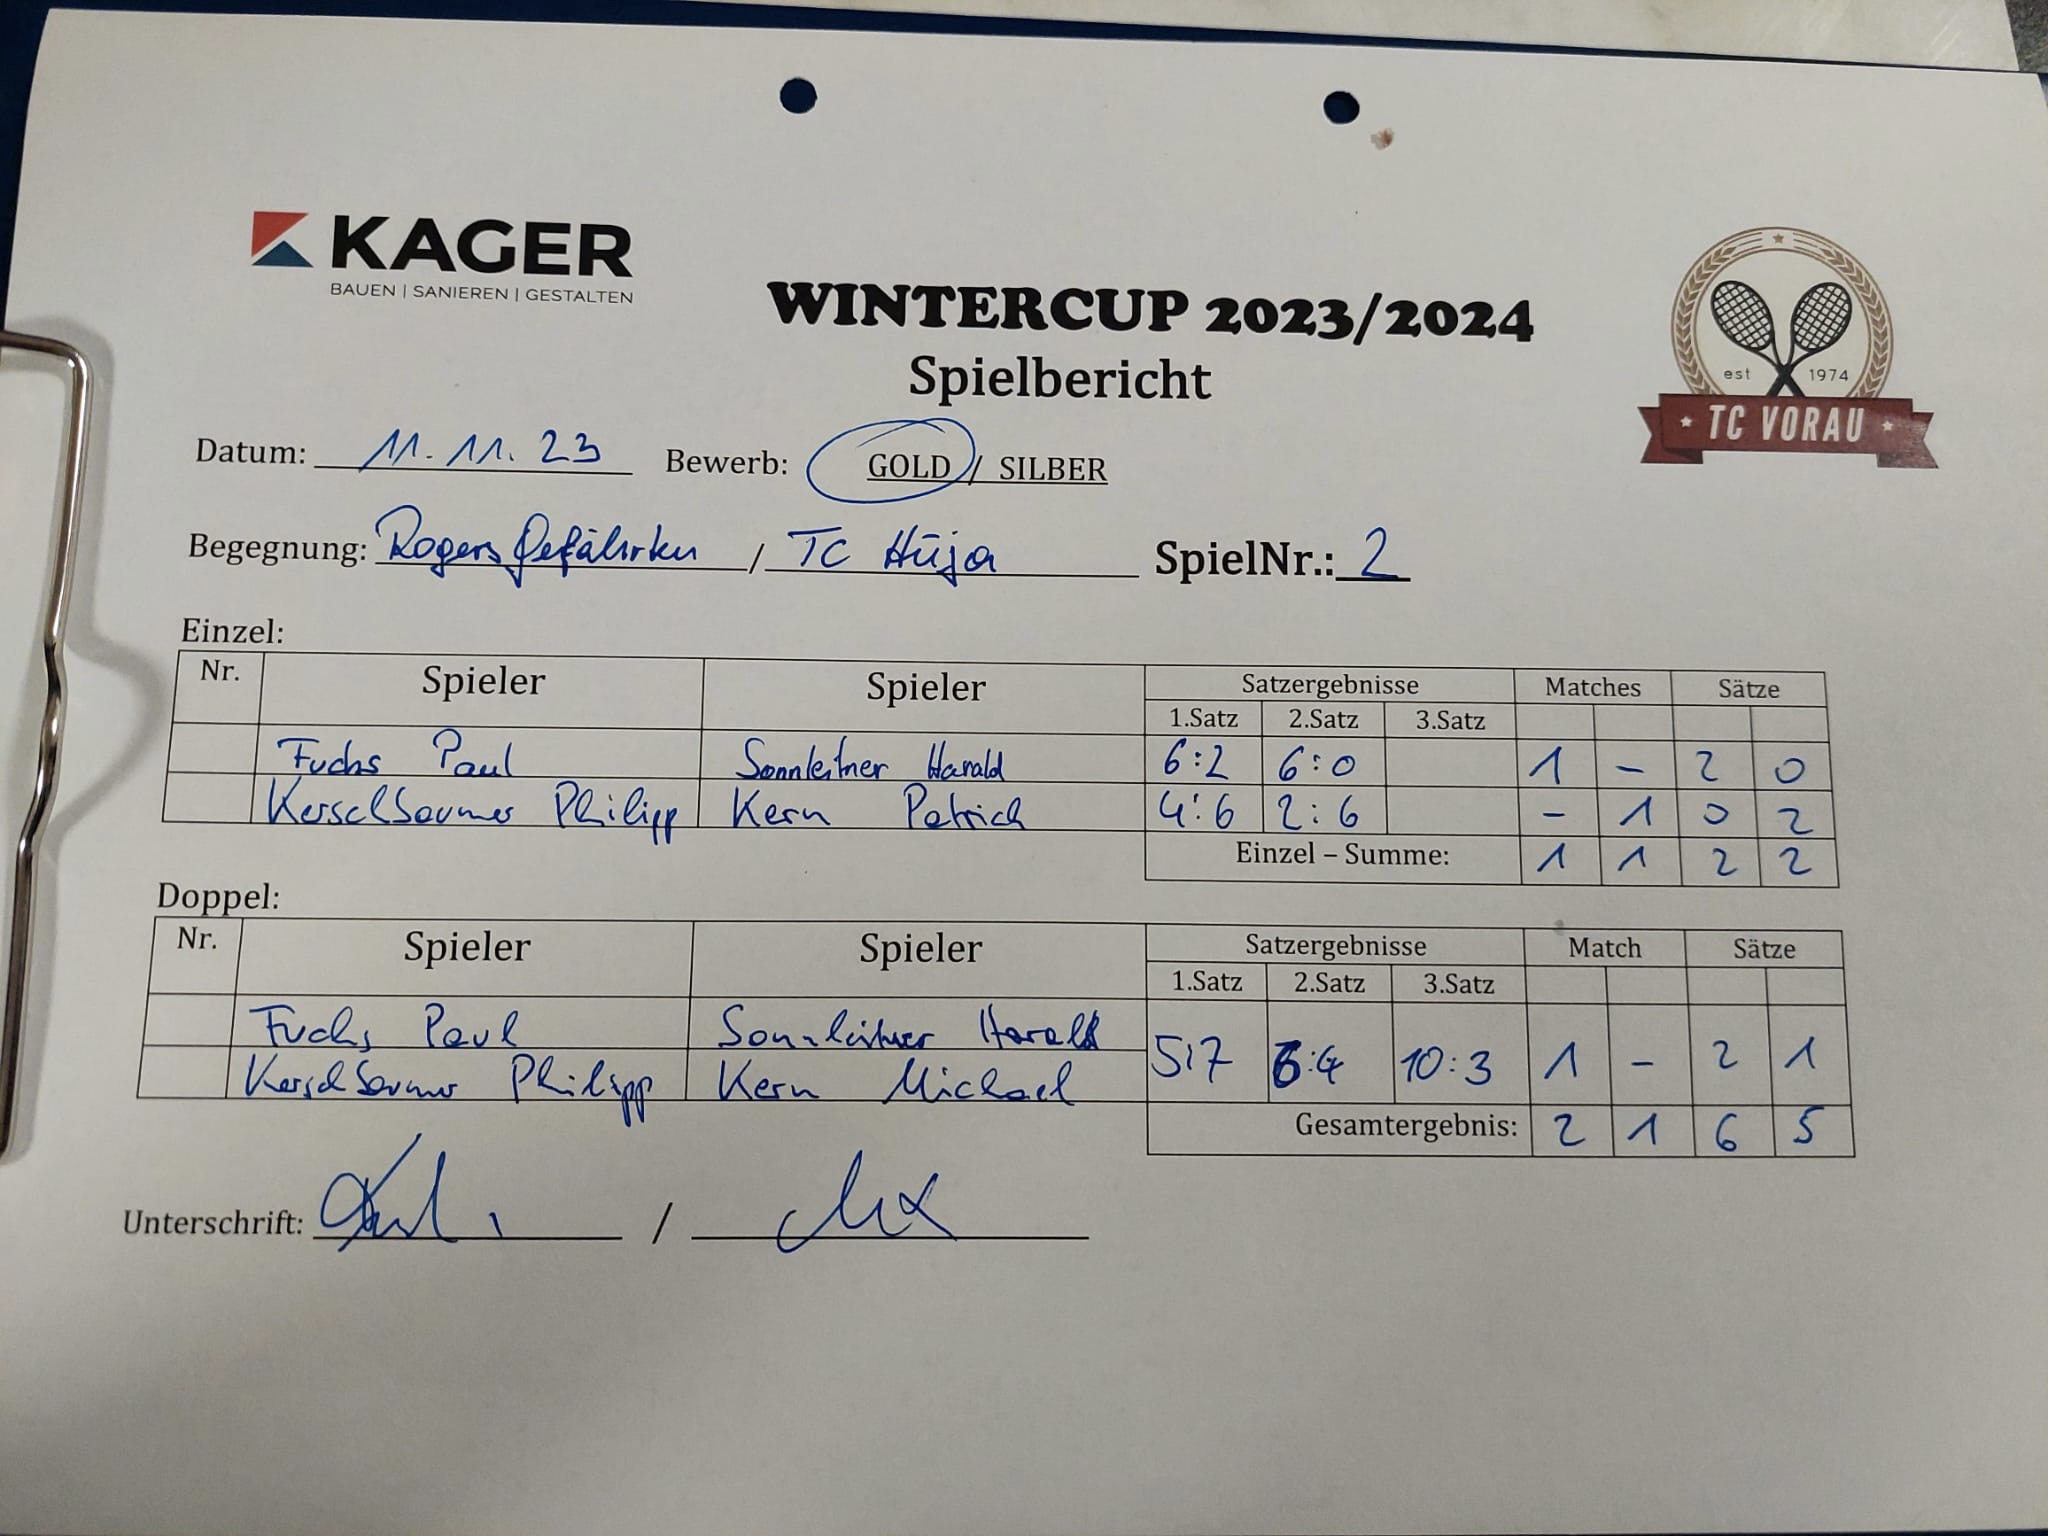 KAGER
BAUEN | SANIEREN | GESTALTEN
WINTERCUP 2023/2024
Spielbericht
est 1974
TC VORAU
Datum: 11.11.23 Bewerb: GOLD / SILBER
Begegnung: Rogers Gefährten / TC Hüja SpielNr.: 2
Einzel:
Nr. Spieler Spieler Satzergebnisse Matches Sätze
1.Satz 2.Satz 3.Satz
Fuchs Paul Sonnleitner Harald 6:2 6:0 1 – 2 0
Kerschbaumer Philipp Kern Patrick 4:6 2:6 – 1 0 2
Einzel – Summe: 1 1 2 2
Doppel:
Nr. Spieler Spieler Satzergebnisse Match Sätze
1.Satz 2.Satz 3.Satz
Fuchs Paul Sonnleitner Harald 5:7 6:4 10:3 1 – 2 1
Kerschbaumer Philipp Kern Michael
Gesamtergebnis: 2 1 6 5
Unterschrift: /